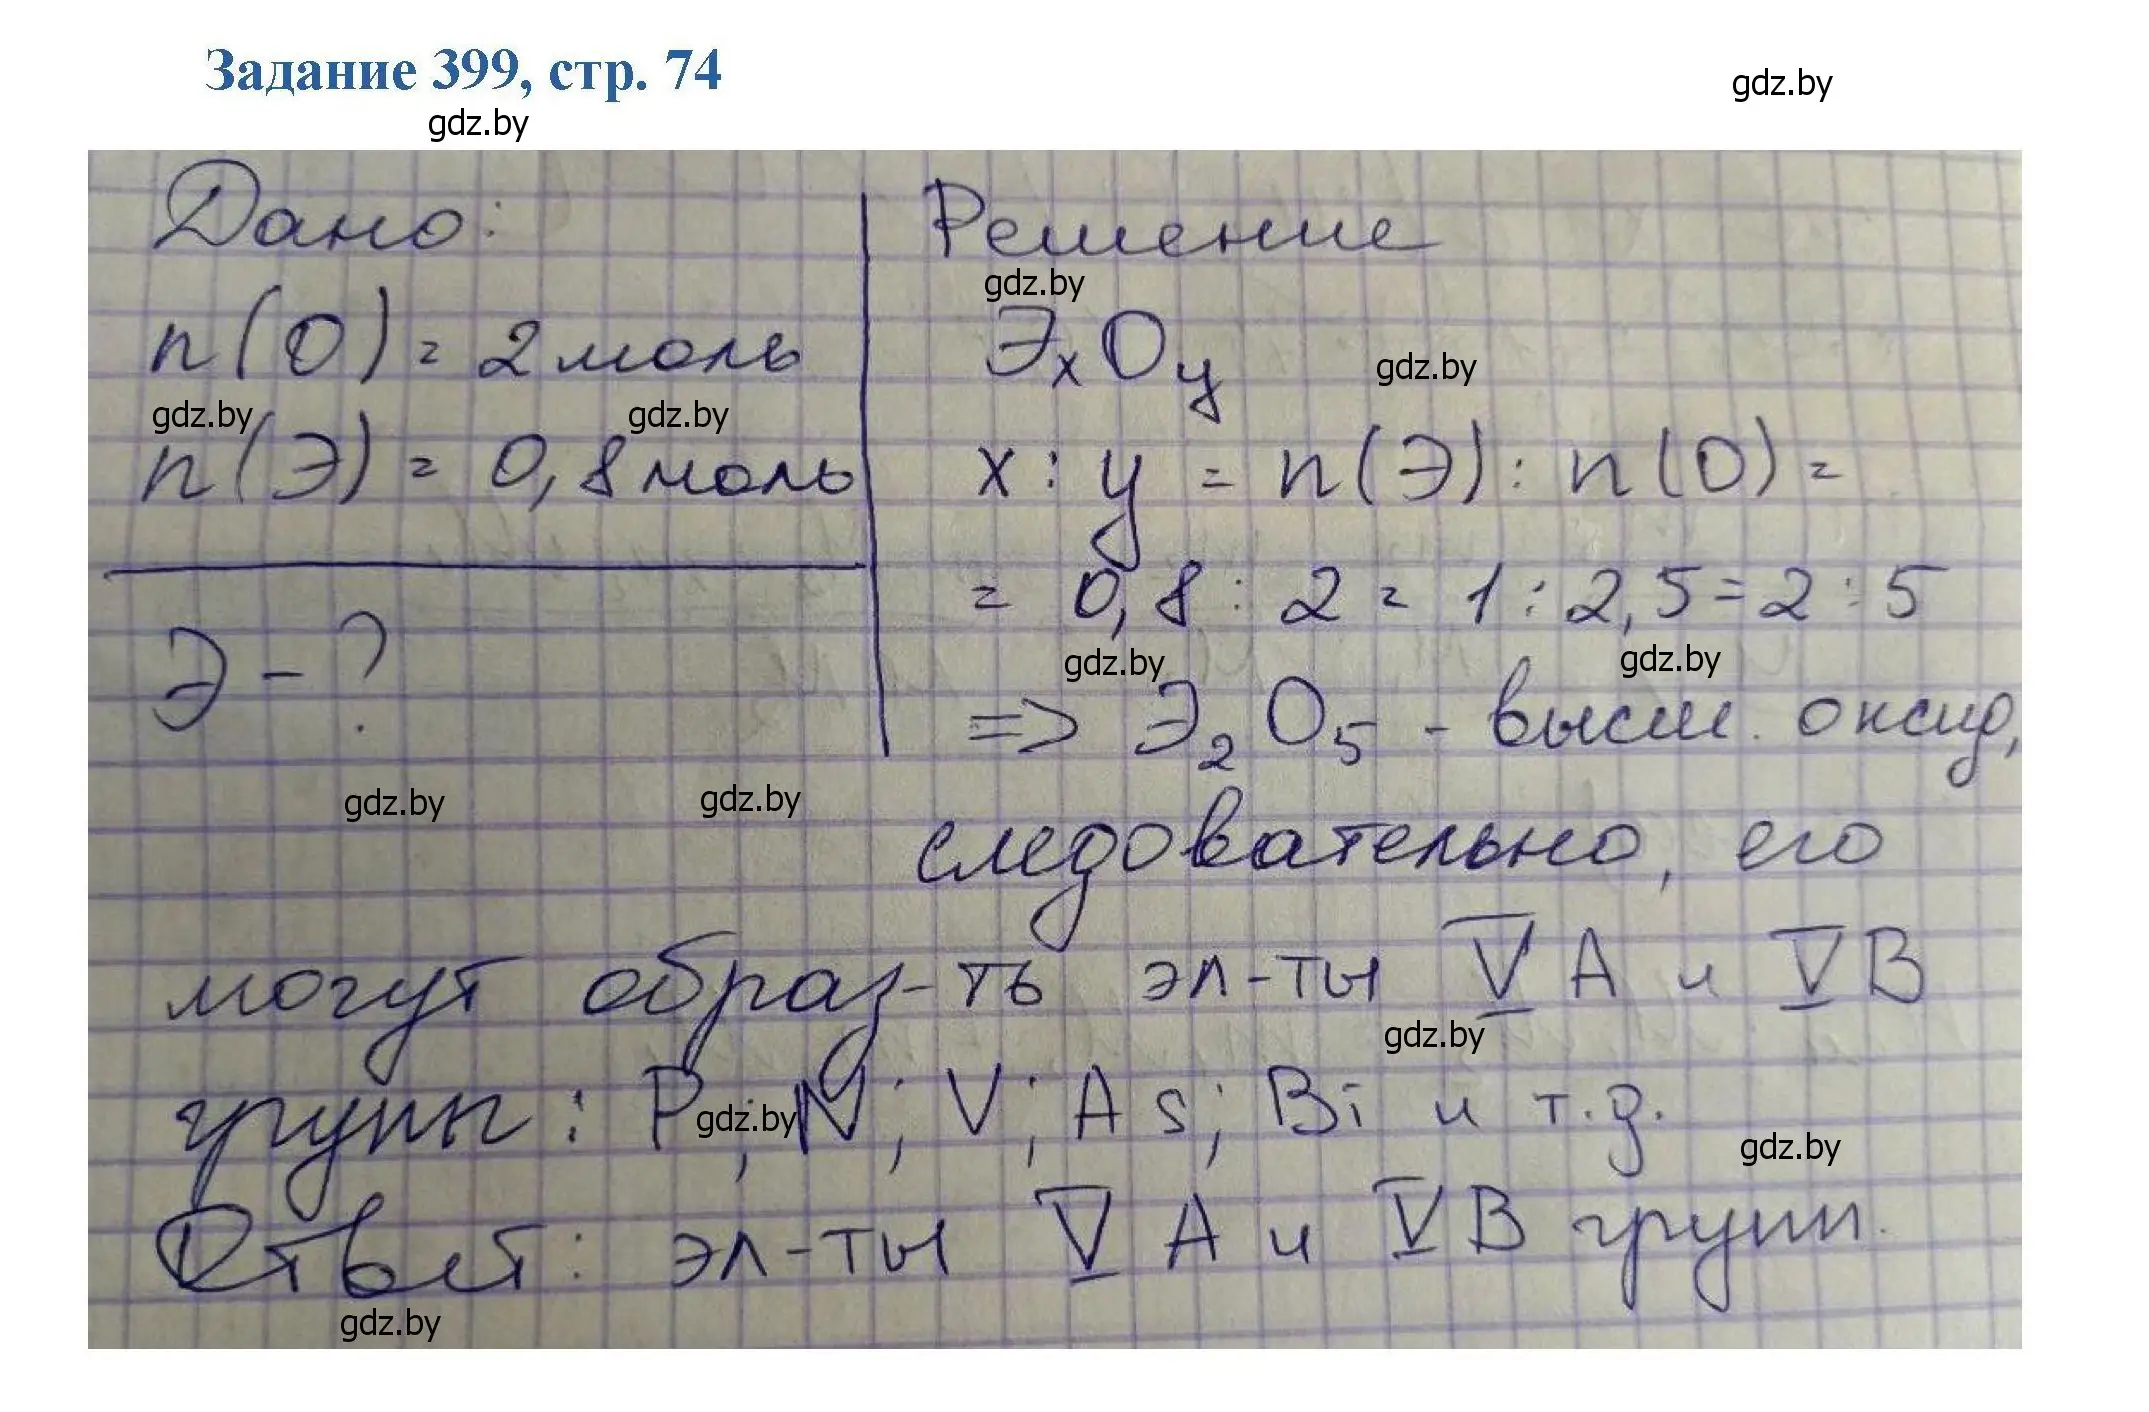 Задание 399, стр. 74
gdz.by
gdz.by
Дано:
n(O) = 2 моль
gdz.by gdz.by
n(Э) = 0,8 моль
Э - ?
Решение
gdz.by
ЭxOy
gdz.by
x : y = n(Э) : n(O) =
= 0,8 : 2 = 1 : 2,5 = 2 : 5
gdz.by gdz.by
=> Э2O5 - высш. оксид,
gdz.by gdz.by
следовательно, его
могут образ-ть эл-ты V A и V B
gdz.by
группы: P; N; V; As; Bi и т.д.
gdz.by
gdz.by
Ответ: эл-ты V A и V B групп.
gdz.by